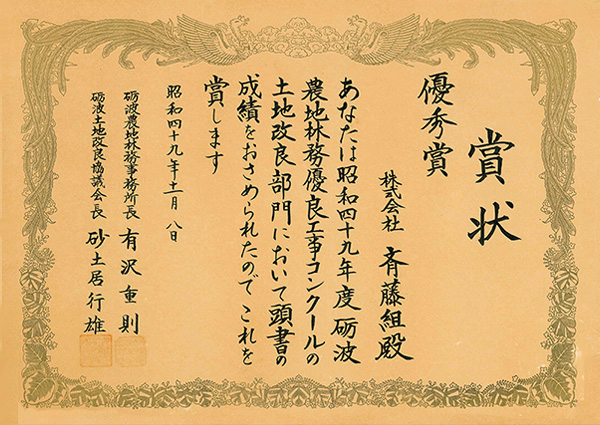 賞状
優秀賞
株式会社 斉藤組殿
あなたは昭和四十九年度砺波
農地林務優良工事コンクールの
土地改良部門において頭書の
成績をおさめられたのでこれを
賞します
昭和四十九年十一月八日
砺波農地林務事務所長 有沢重則
砺波土地改良協議会長 砂土居行雄